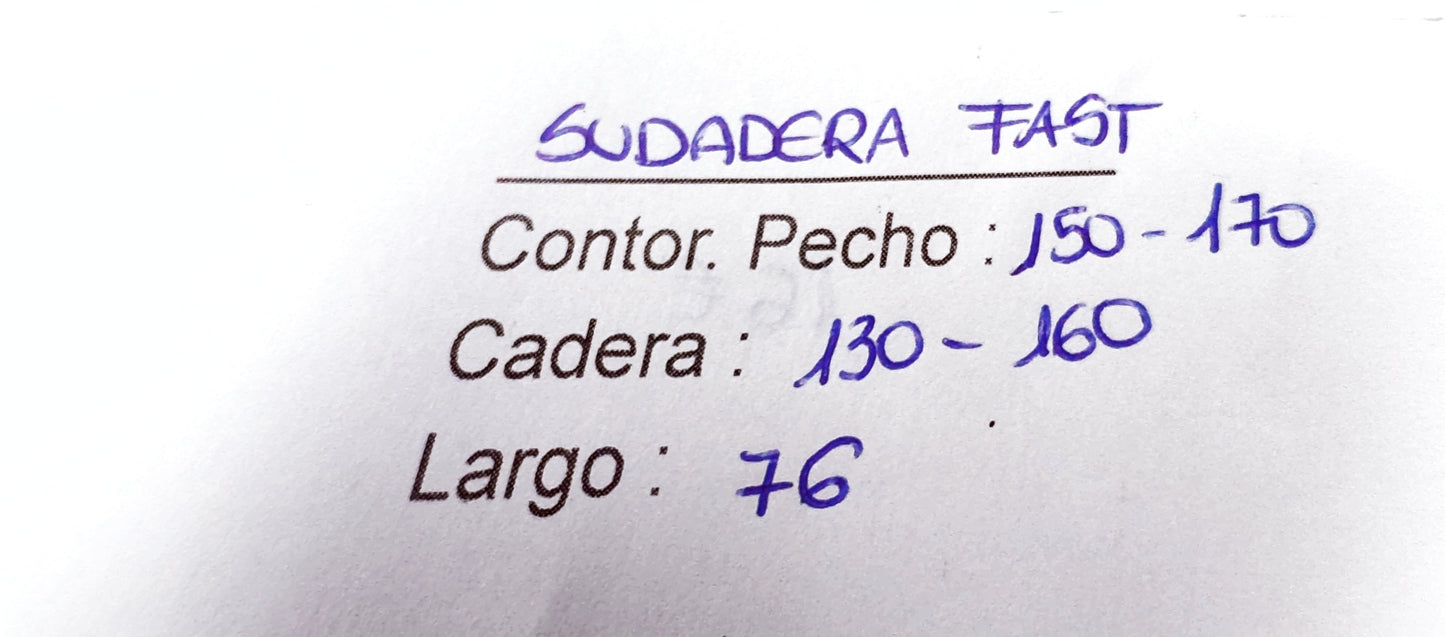 SUDADERA FAST
Contor. Pecho : 150 - 170
Cadera : 130 - 160
Largo : 76